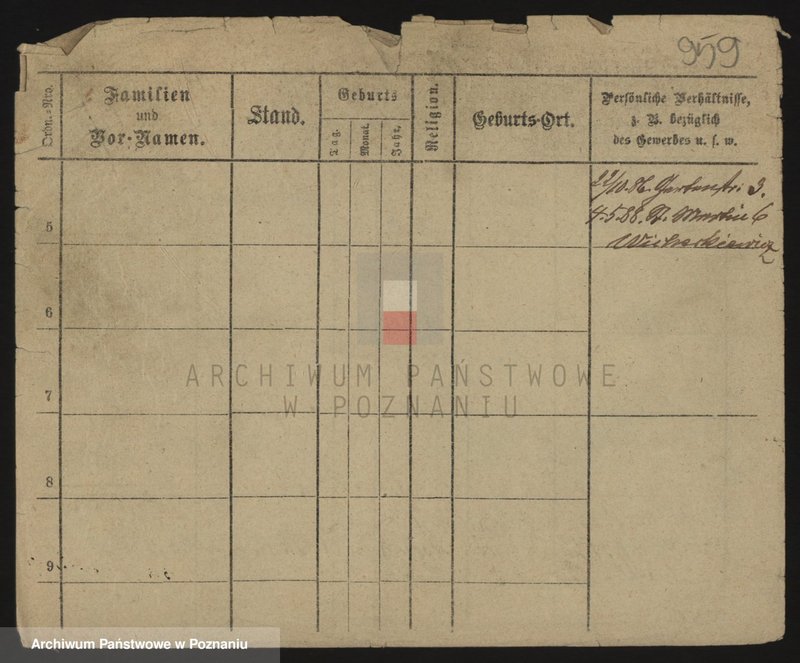 959
Ordn.-Nro.
Familien
und
Vor-Namen.
Stand.
Geburts
Tag.
Monat.
Jahr.
Religion.
Geburts-Ort.
Persönliche Verhältnisse,
z. B. bezüglich
des Gewerbes u. s. w.
22/10.86. Gartenstr. 3.
4.5.88. St. Martin 6
5
6
7
8
9
ARCHIWUM PAŃSTWOWE
W POZNANIU
Archiwum Państwowe w Poznaniu